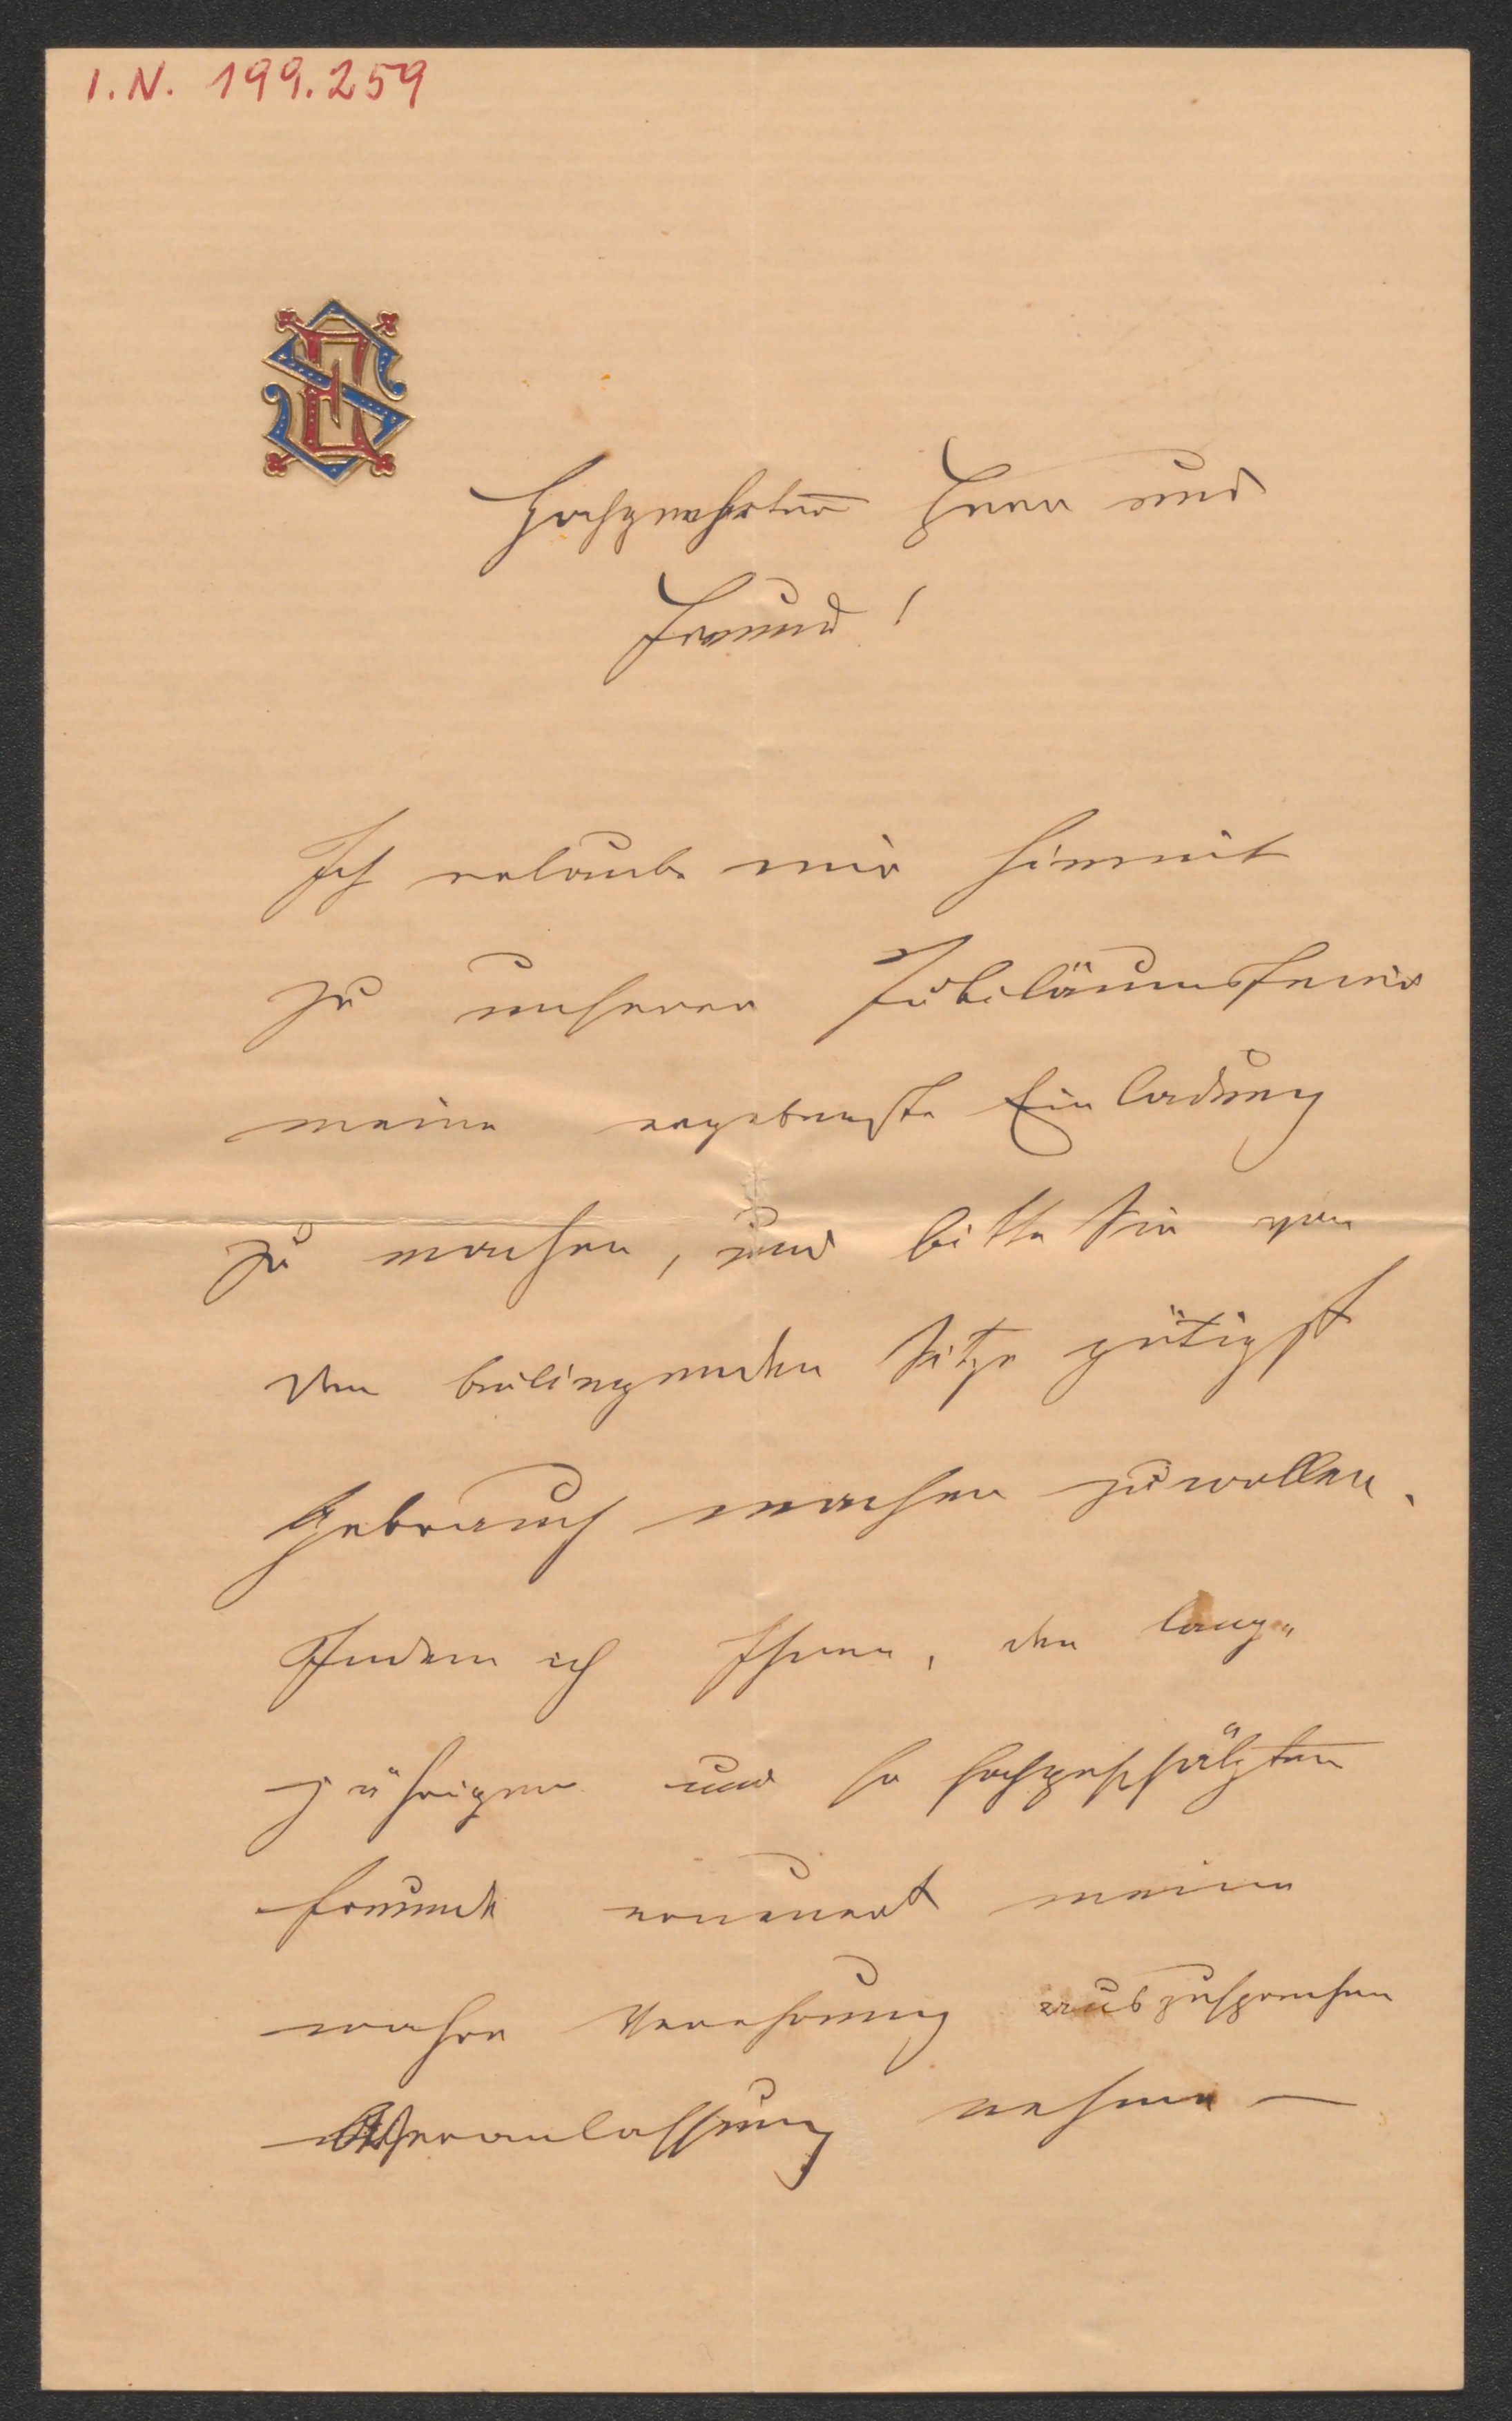 I.N. 199.259
Hochgeehrter Herr und
Freund!
Ich erlaube mir hiemit
zu unserer Jubiläumsfeier
meine ergebenste Einladung
zu machen, und bitte Sie von
den beiliegenden Sitze gütigst
Gebrauch machen zu wollen.
Indem ich Ihnen, den lang„
jährigen und so hochgeschätzten
Freunde erneuert meine
wahre Verehrung auszusprechen
Veranlassung nehme —